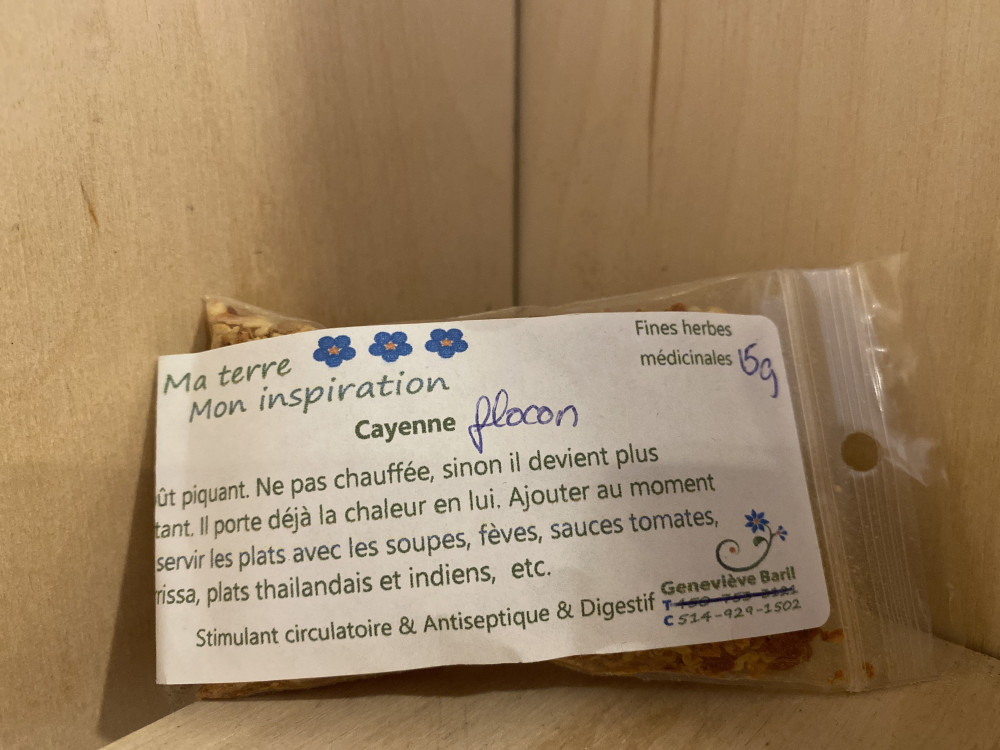 Ma terre
Mon inspiration
Fines herbes
médicinales 15g
Cayenne flocon
ût piquant. Ne pas chauffée, sinon il devient plus
tant. Il porte déjà la chaleur en lui. Ajouter au moment
servir les plats avec les soupes, fèves, sauces tomates,
rissa, plats thailandais et indiens, etc.
Stimulant circulatoire & Antiseptique & Digestif
Geneviève Baril
T
C 514-929-1502